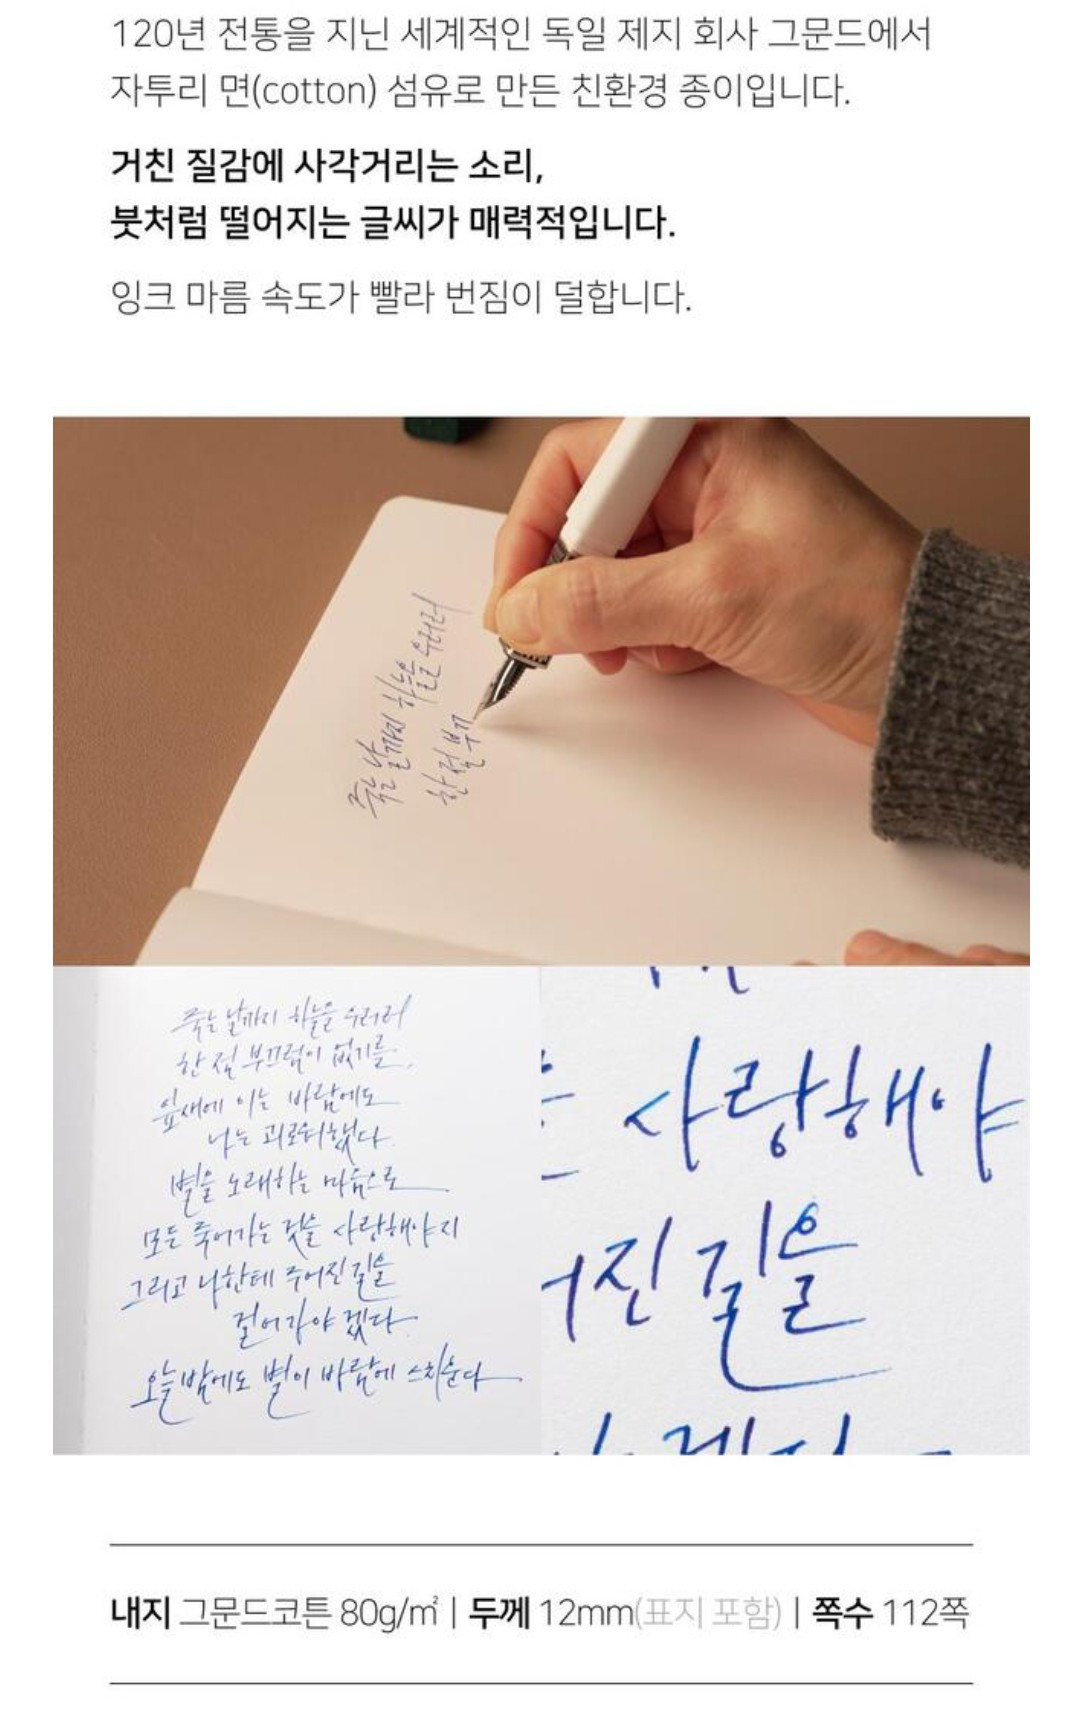 120년 전통을 지닌 세계적인 독일 제지 회사 그문드에서
자투리 면(cotton) 섬유로 만든 친환경 종이입니다.
거친 질감에 사각거리는 소리,
붓처럼 떨어지는 글씨가 매력적입니다.
잉크 마름 속도가 빨라 번짐이 덜합니다.
죽는 날까지 하늘을 우러러
한 점 부끄
죽는 날까지 하늘을 우러러
한 점 부끄럼이 없기를,
잎새에 이는 바람에도
나는 괴로워했다.
별을 노래하는 마음으로
모든 죽어가는 것을 사랑해야지
그리고 나한테 주어진 길을
걸어가야겠다.
오늘밤에도 별이 바람에 스치운다
사랑해야
어진 길을
내지 그문드코튼 80g/㎡ | 두께 12mm(표지 포함) | 쪽수 112쪽